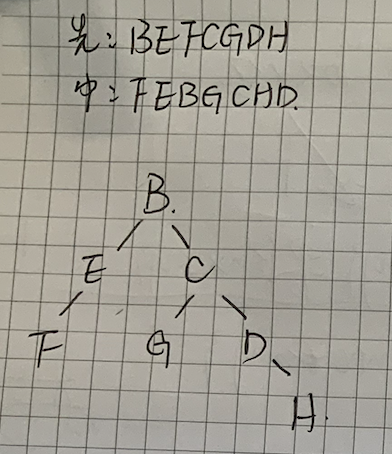 先:BEFCGDH
中:FEBGCHD.
B.
E C
F G D
H.